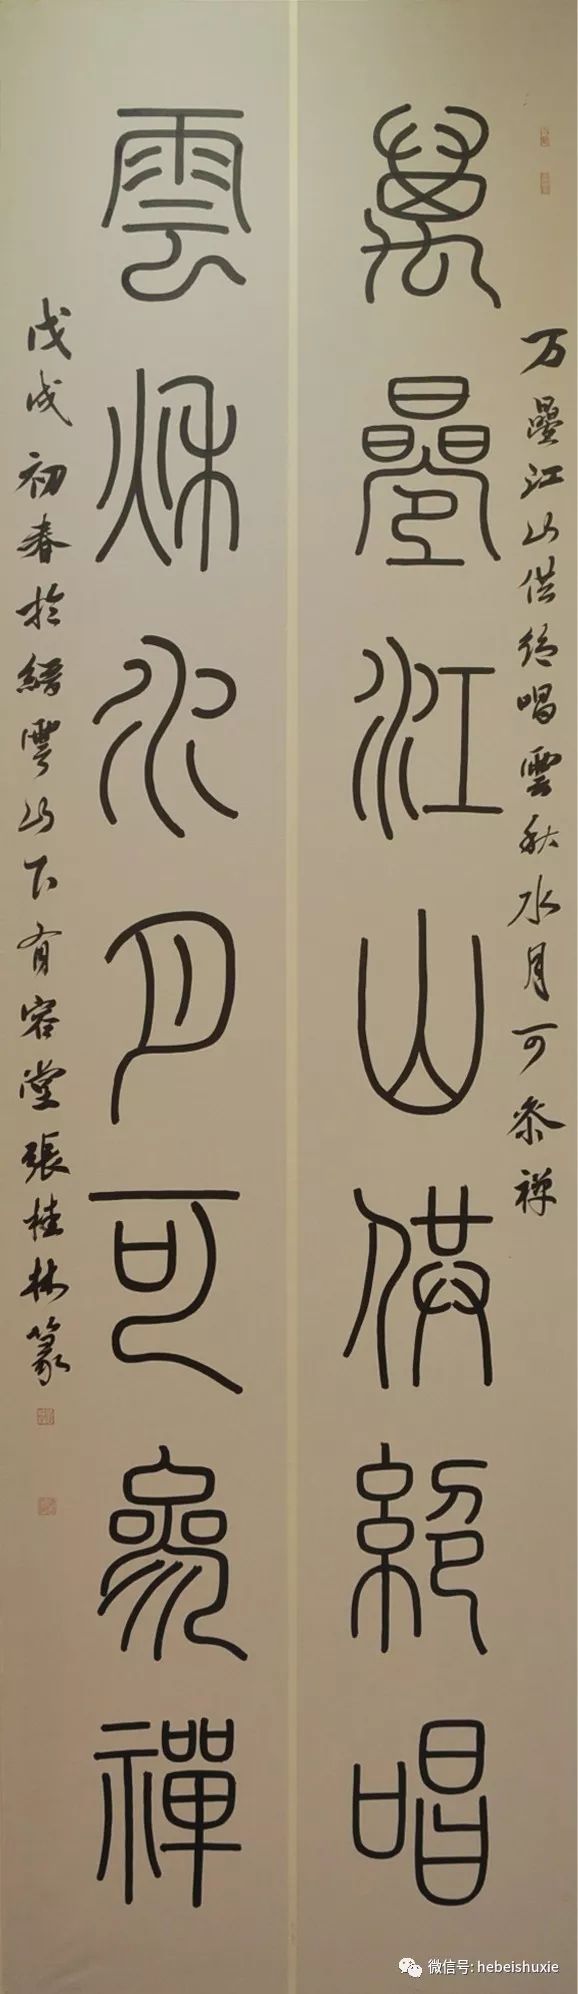 万疊江山供绝唱雲秋水月可参禅
萬疊江山供絕唱
雲秋水月可參禪
戊戌初春於縉雲山下有容堂張桂林篆
微信号: hebeishuxie